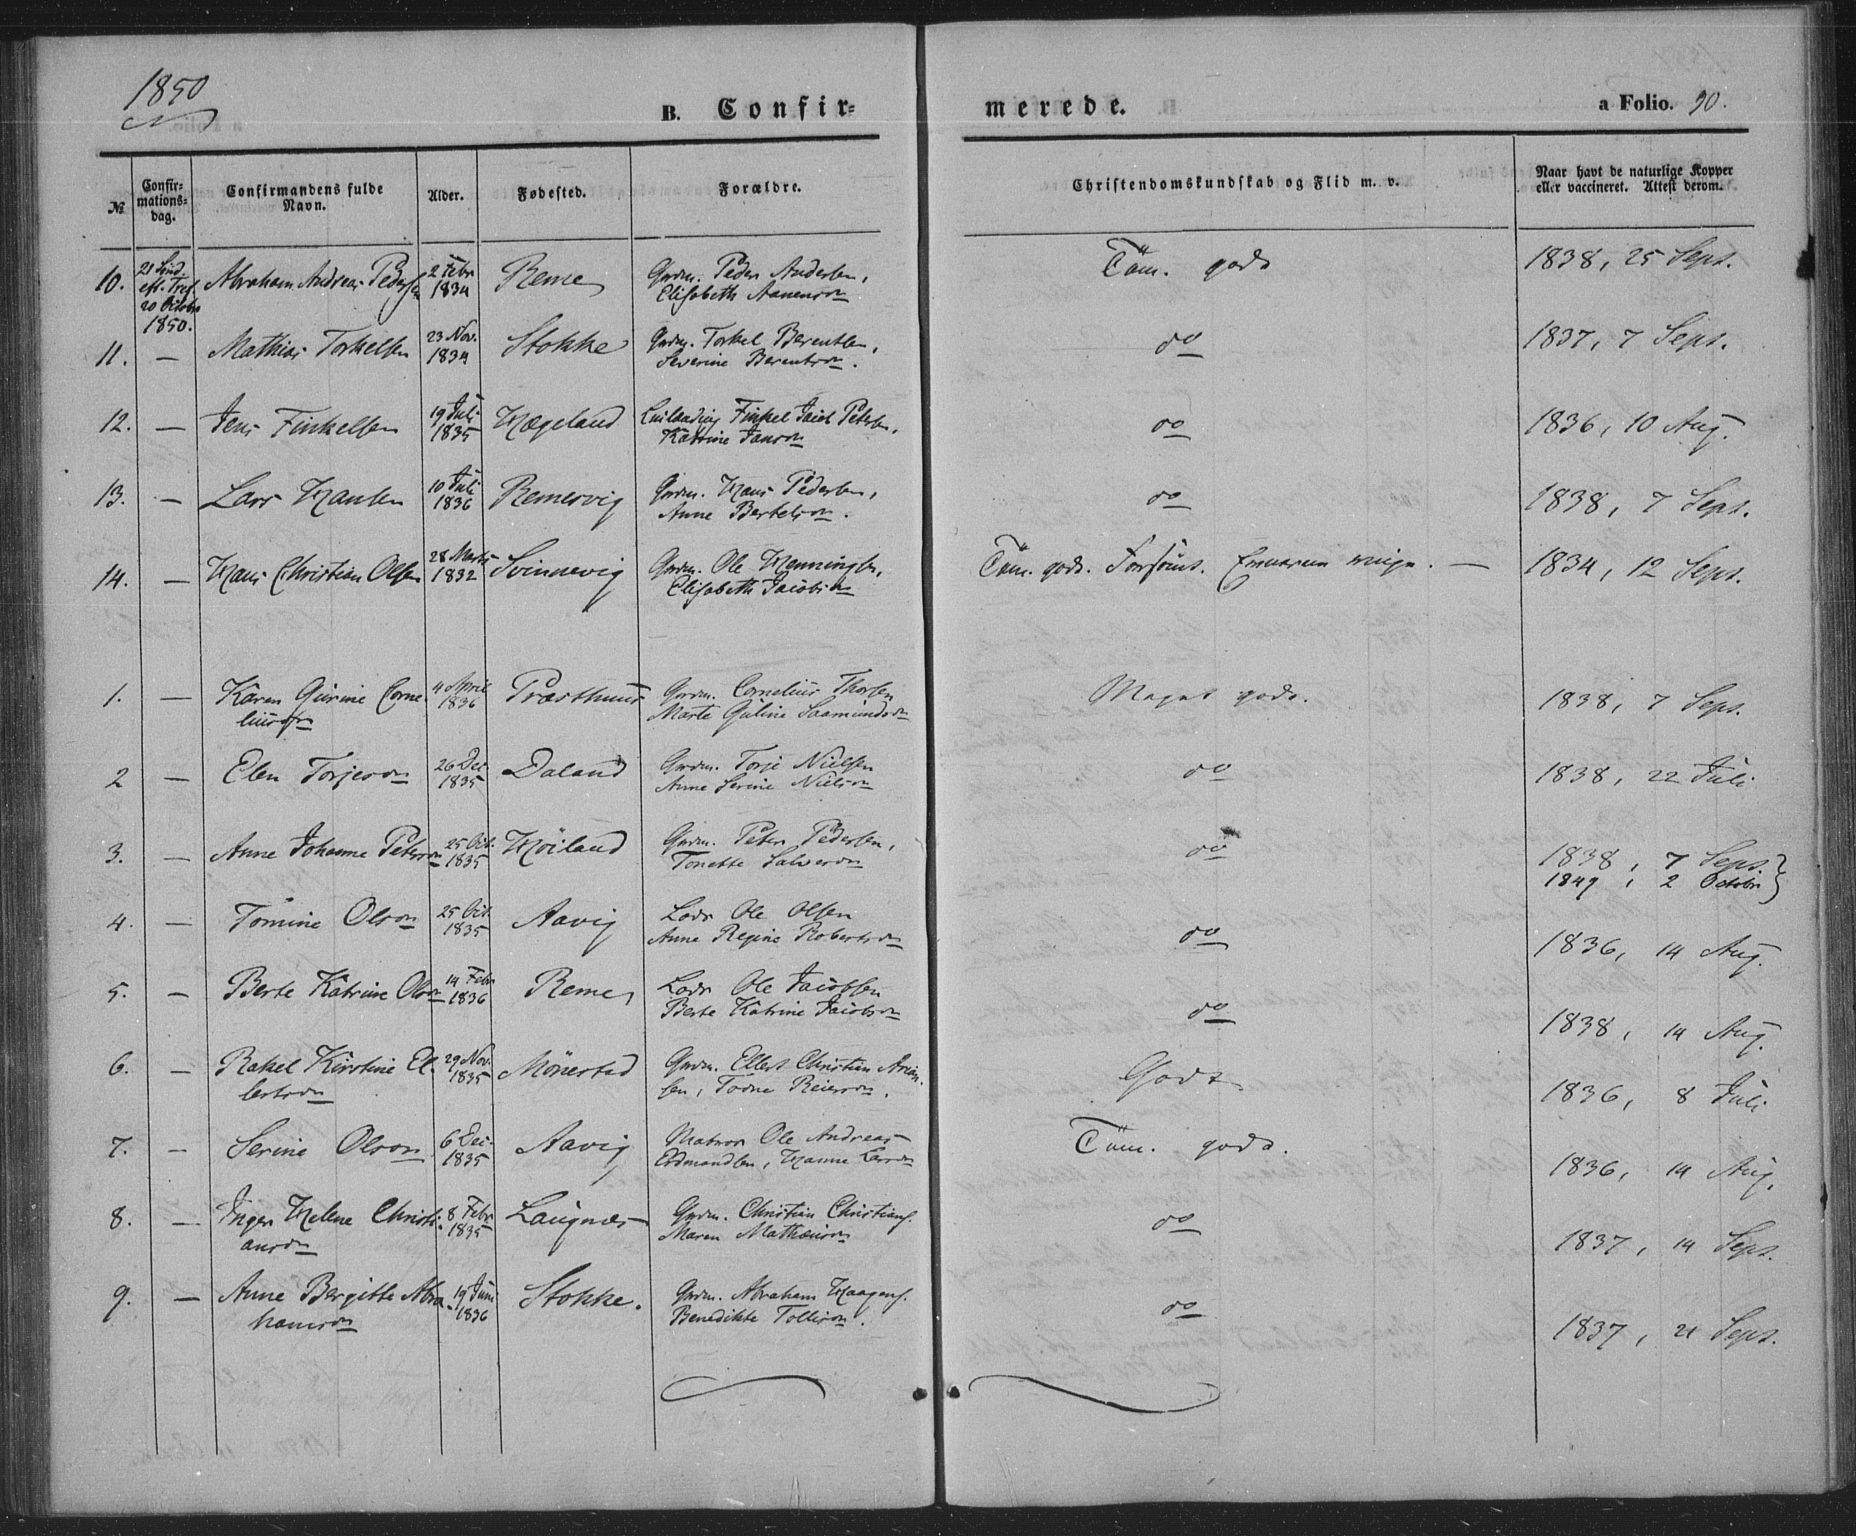 1850
B. Confir-
merede.
a Folio. 90.
№
Confir-
mations-
dag.
Confirmandens fulde
Navn.
Alder.
Fødested.
Forældre.
Christendomskundskab og Flid m. v.
Naar havt de naturlige Kopper
eller vaccineret. Attest derom.
10. 21 Sønd. eft. Tref. 20 Octobr 1850. Abraham Andreas Pedersen 2 Febr 1834 Reme Grdm. Peder Andersen, Elisabeth Aanensdn Tæm. godt 1838, 25 Sept.
11. — Mathias Torkelsen 23 Nov. 1834 Stokke Grdm. Torkel Berentsen, Severine Berentsdn. do 1837, 7 Sept.
12. — Jens Finkelsen 19 Juli 1835 Hægeland Finkel Jacob Petersen, Katrine Jansdn do 1836, 10 Aug.
13. — Lars Hansen 10 Juli 1836 Remesvig Grdm. Hans Pedersen, Anne Bertelsdn. do 1838, 7 Sept.
14. — Hans Christian Olsen 28 Marts 1832 Svinnevig Grdm. Ole Henningsen, Elisabeth Jacobsdn Tæm. godt. Forsømt. — 1834, 12 Sept.
1. — Karen Gurine Corneliusdn 4 April 1836 Præsthuus Grdm. Cornelius Thorsen Marte Guline Saamundsdn Meget godt. 1838, 7 Sept.
2 — Elen Torjesdn 26 Dec. 1835 Daland Grdm. Torje Nielsen Anne Serine Nielsdn do 1838, 22 Juli
3. — Anne Johanne Petersdn 25 Oct. 1835 Høiland Grdm. Peter Pedersen, Tonette Salvesdn do 1838, 7 Sept. 1849, 2 Octobr }
4. — Tomine Olsdn 25 Oct. 1835 Aavig Lods Ole Olsen Anne Regine Robertsdn do 1836, 14 Aug.
5. — Berte Katrine Olsdn 14 Febr 1836 Reme Lods Ole Jacobsen Berte Katrine Jacobsdn do 1838, 14 Aug.
6. — Rakel Kirstine Ellertsdn 29 Nov. 1835 Mønestad Grdm. Ellert Christian Aruensen, Todne Reiersdn. Godt 1836, 8 Juli
7. — Serine Olsdn 6 Dec. 1835 Aavig Matros Ole Andreas Erdmandsen, Hanne Larsdn Tæm. godt. 1836, 14 Aug.
8. — Inger Helene Christiansdn 8 Febr 1835 Laugnes Grdm. Christian Christians. Maren Mathæusdn do 1837, 14 Sept.
9. — Anne Bergitte Abrahamsdn 19 Juni 1836 Stokke. Grdm. Abraham Haagens. Benedikte Tollisdn. do 1837, 21 Sept.